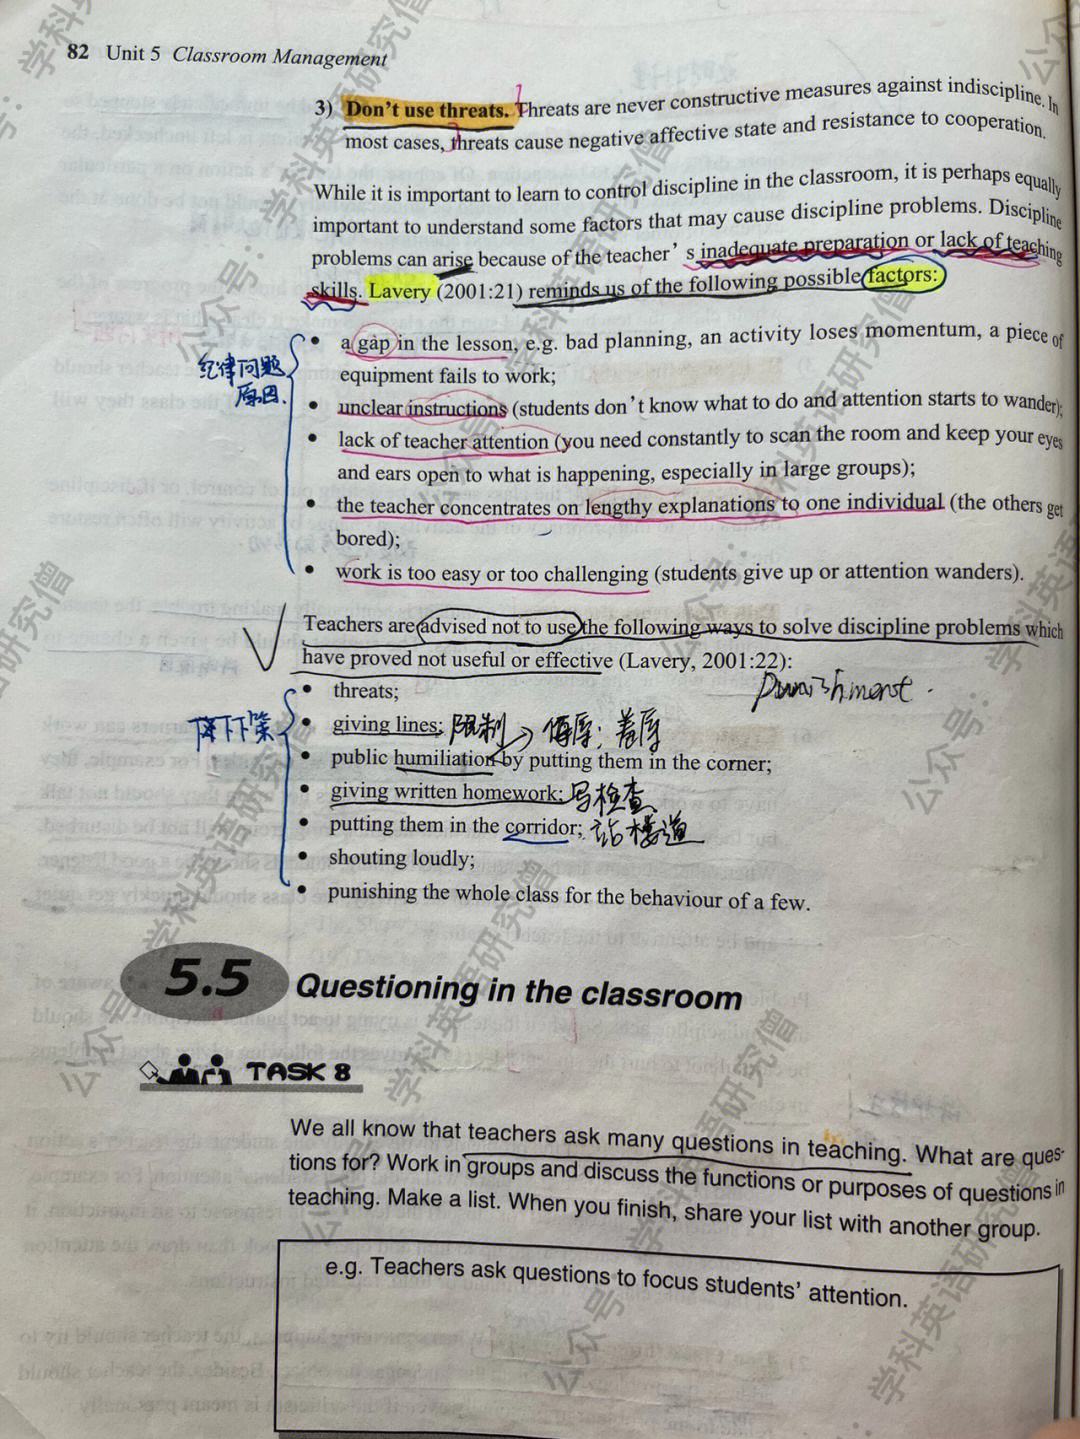 82 Unit 5 Classroom Management
3) Don't use threats. Threats are never constructive measures against indiscipline. In
most cases, threats cause negative affective state and resistance to cooperation.
While it is important to learn to control discipline in the classroom, it is perhaps equally
important to understand some factors that may cause discipline problems. Discipline
problems can arise because of the teacher's inadequate preparation or lack of teaching
skills. Lavery (2001:21) reminds us of the following possible factors:
• a gap in the lesson, e.g. bad planning, an activity loses momentum, a piece of
equipment fails to work;
纪律问题
原因.
• unclear instructions (students don't know what to do and attention starts to wander);
• lack of teacher attention (you need constantly to scan the room and keep your eyes
and ears open to what is happening, especially in large groups);
• the teacher concentrates on lengthy explanations to one individual (the others get
bored);
• work is too easy or too challenging (students give up or attention wanders).
Teachers are advised not to use the following ways to solve discipline problems which
have proved not useful or effective (Lavery, 2001:22):
• threats; punishment.
下下策
• giving lines; 限制 → 侮辱; 羞辱
• public humiliation by putting them in the corner;
• giving written homework; 写检查
• putting them in the corridor; 站楼道
• shouting loudly;
• punishing the whole class for the behaviour of a few.
5.5 Questioning in the classroom
TASK 8
We all know that teachers ask many questions in teaching. What are ques-
tions for? Work in groups and discuss the functions or purposes of questions in
teaching. Make a list. When you finish, share your list with another group.
e.g. Teachers ask questions to focus students' attention.
公众号：学科英语研究僧